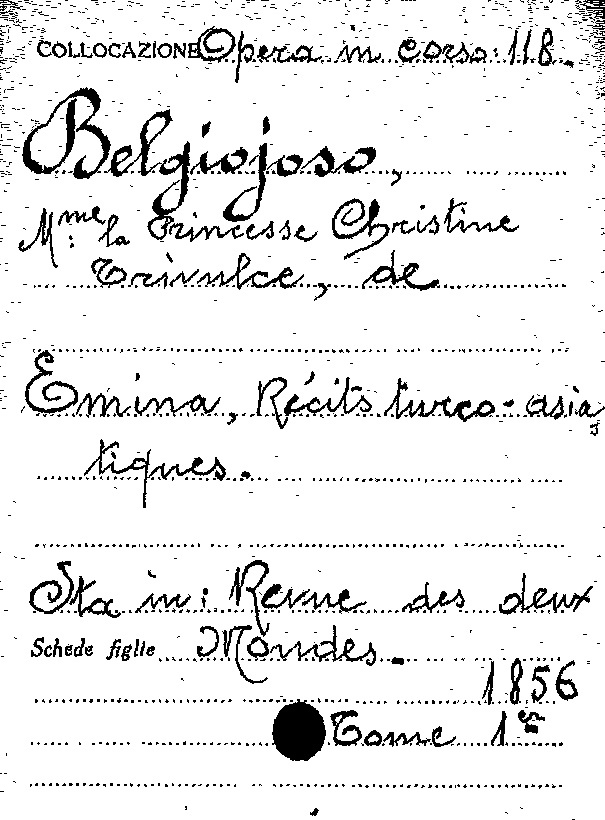 COLLOCAZIONE Opera in corso: 118.
Belgiojoso,
Mme: la Princesse Christine
Trivulce, de
Emina, Récits turco-asia
tiques.
Sta in: Revue des deux
Schede figlie Mondes.
1856
Tome 1er